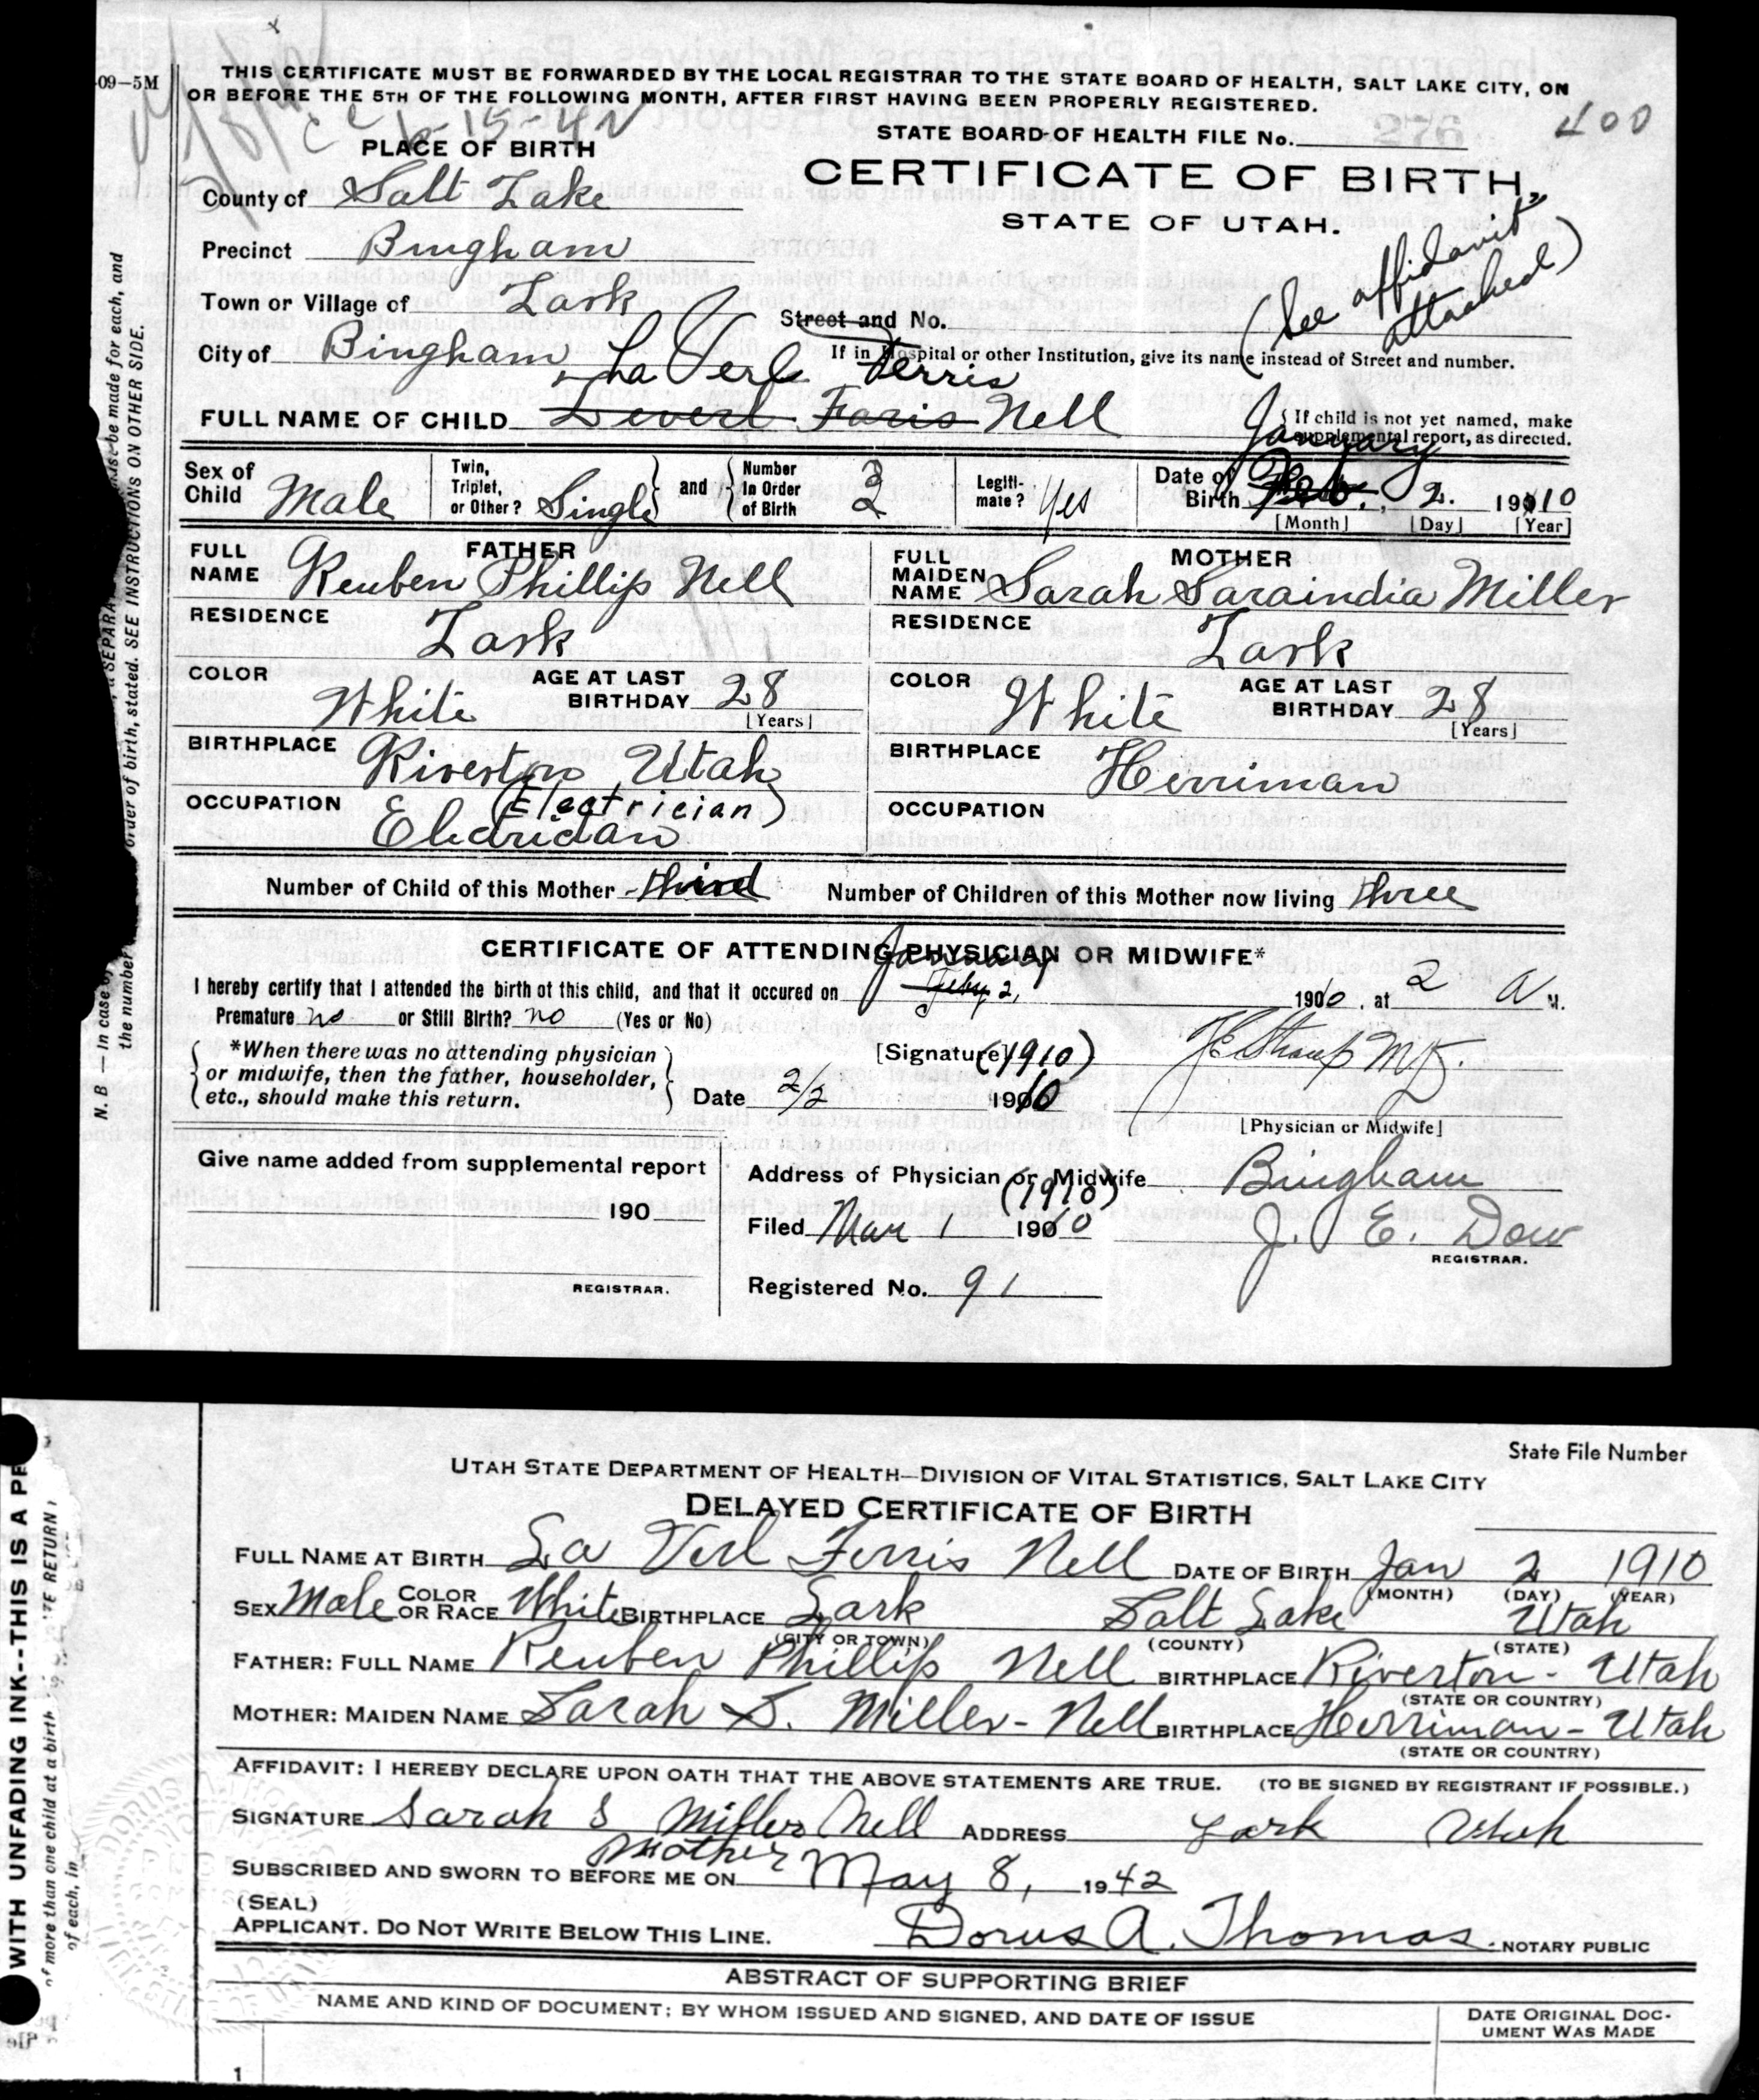 09—5M
THIS CERTIFICATE MUST BE FORWARDED BY THE LOCAL REGISTRAR TO THE STATE BOARD OF HEALTH, SALT LAKE CITY, ON
OR BEFORE THE 5TH OF THE FOLLOWING MONTH, AFTER FIRST HAVING BEEN PROPERLY REGISTERED.
STATE BOARD OF HEALTH FILE No. 276 400
PLACE OF BIRTH
CERTIFICATE OF BIRTH,
STATE OF UTAH.
County of Salt Lake
Precinct Bingham
(See affidavit attached)
Town or Village of Lark
Street and No.
City of Bingham
If in Hospital or other Institution, give its name instead of Street and number.
La Verl Ferris
FULL NAME OF CHILD Deverl Faris Nell
{ If child is not yet named, make
supplemental report, as directed.
January
Sex of Child Male
Twin, Triplet, or Other? Single } and { Number In Order of Birth 3
Legiti- mate? Yes
Date of Birth Feb., 2. 1910
[Month] [Day] [Year]
FATHER
FULL NAME Reuben Phillip Nell
MOTHER
FULL MAIDEN NAME Sarah Saraindia Miller
RESIDENCE Lark
RESIDENCE Lark
COLOR White AGE AT LAST BIRTHDAY 28 [Years]
COLOR White AGE AT LAST BIRTHDAY 28 [Years]
BIRTHPLACE Riverton Utah
BIRTHPLACE Herriman
(Electrician)
OCCUPATION Electrician
OCCUPATION
Number of Child of this Mother third Number of Children of this Mother now living three
CERTIFICATE OF ATTENDING PHYSICIAN OR MIDWIFE*
January
I hereby certify that I attended the birth of this child, and that it occured on Feby 2, 1910, at 2 A M.
Premature no or Still Birth? no (Yes or No)
{ *When there was no attending physician
or midwife, then the father, householder,
etc., should make this return. }
[Signature] M.D.
(1910)
Date 2/2 1910
[Physician or Midwife]
Give name added from supplemental report
190
REGISTRAR.
Address of Physician or Midwife Bingham
(1910)
Filed Mar 1 1910 J. E. Dow
REGISTRAR.
Registered No. 91
N. B. — In case of
the number
order of birth, stated. SEE INSTRUCTIONS ON OTHER SIDE.
be made for each, and
State File Number
UTAH STATE DEPARTMENT OF HEALTH—DIVISION OF VITAL STATISTICS, SALT LAKE CITY
DELAYED CERTIFICATE OF BIRTH
FULL NAME AT BIRTH La Verl Ferris Nell DATE OF BIRTH Jan 2 1910
(MONTH) (DAY) (YEAR)
SEX Male COLOR OR RACE White BIRTHPLACE Lark Salt Lake Utah
(CITY OR TOWN) (COUNTY) (STATE)
FATHER: FULL NAME Reuben Phillip Nell BIRTHPLACE Riverton - Utah
(STATE OR COUNTRY)
MOTHER: MAIDEN NAME Sarah S. Miller - Nell BIRTHPLACE Herriman - Utah
(STATE OR COUNTRY)
AFFIDAVIT: I HEREBY DECLARE UPON OATH THAT THE ABOVE STATEMENTS ARE TRUE. (TO BE SIGNED BY REGISTRANT IF POSSIBLE.)
SIGNATURE Sarah S Miller Nell ADDRESS Lark Utah
Mother
SUBSCRIBED AND SWORN TO BEFORE ME ON May 8, 1942
(SEAL)
APPLICANT. DO NOT WRITE BELOW THIS LINE. Dorus A. Thomas NOTARY PUBLIC
ABSTRACT OF SUPPORTING BRIEF
NAME AND KIND OF DOCUMENT; BY WHOM ISSUED AND SIGNED, AND DATE OF ISSUE
DATE ORIGINAL DOC-
UMENT WAS MADE
1
WITH UNFADING INK--THIS IS A PE
of more than one child at a birth
RETURN
of each, in